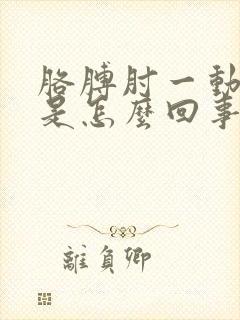 胳膊肘一動
是怎麼回事
離負卿